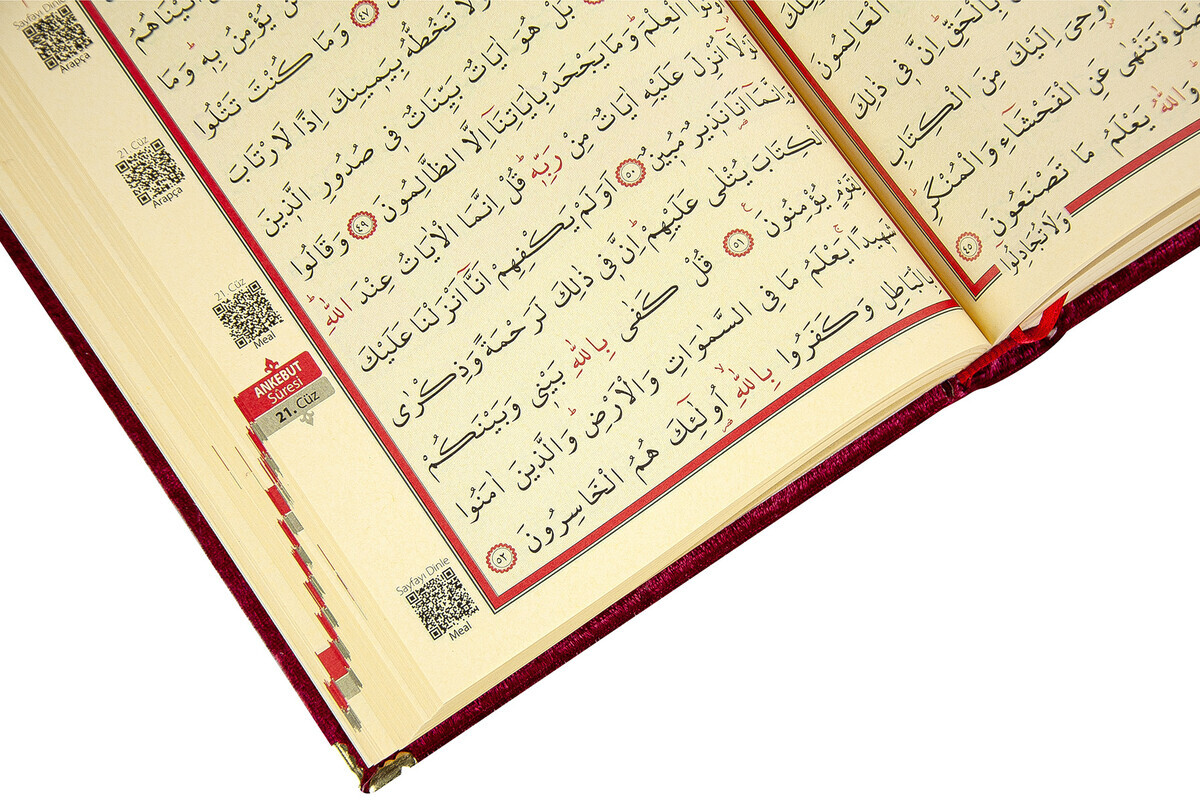 ذٰلِكَ
الْعَالِمُونَ
بِالْحَقِّ اِنَّ فٖي ذٰلِكَ
اُوحِيَ اِلَيْكَ مِنَ الْكِتَابِ
تَنْهٰى عَنِ الْفَحْشَٓاءِ وَالْمُنْكَرِ
وَاللّٰهُ يَعْلَمُ مَا تَصْنَعُونَ ٤٥
وَلَا تُجَادِلُٓوا
اٰتَيْنَاهُمُ
مَنْ يُؤْمِنُ بِهٖ وَمَا
٤٧ وَمَا كُنْتَ تَتْلُوا
وَلَا تَخُطُّهُ بِيَمٖينِكَ اِذًا لَارْتَابَ
بَلْ هُوَ اٰيَاتٌ بَيِّنَاتٌ فٖي صُدُورِ الَّذٖينَ
اُوتُوا الْعِلْمَ وَمَا يَجْحَدُ بِاٰيَاتِنَٓا اِلَّا الظَّالِمُونَ ٤٩ وَقَالُوا
لَوْلَٓا اُنْزِلَ عَلَيْهِ اٰيَاتٌ مِنْ رَبِّهٖ قُلْ اِنَّمَا الْاٰيَاتُ عِنْدَ اللّٰهِ
وَاِنَّمَٓا اَنَا۬ نَذٖيرٌ مُبٖينٌ ٥٠ اَوَلَمْ يَكْفِهِمْ اَنَّٓا اَنْزَلْنَا عَلَيْكَ
الْكِتَابَ يُتْلٰى عَلَيْهِمْ اِنَّ فٖي ذٰلِكَ لَرَحْمَةً وَذِكْرٰى
لِقَوْمٍ يُؤْمِنُونَ ٥١ قُلْ كَفٰى بِاللّٰهِ بَيْنٖي وَبَيْنَكُمْ
شَهٖيدًا يَعْلَمُ مَا فِي السَّمٰوَاتِ وَالْاَرْضِ وَالَّذٖينَ اٰمَنُوا
بِالْبَاطِلِ وَكَفَرُوا بِاللّٰهِ اُو۬لٰٓئِكَ هُمُ الْخَاسِرُونَ ٥٢
Sayfayı Dinle
Arapça
21. Cüz
Arapça
21. Cüz
Meal
ANKEBUT
Sûresi
21. Cüz
Sayfayı Dinle
Meal